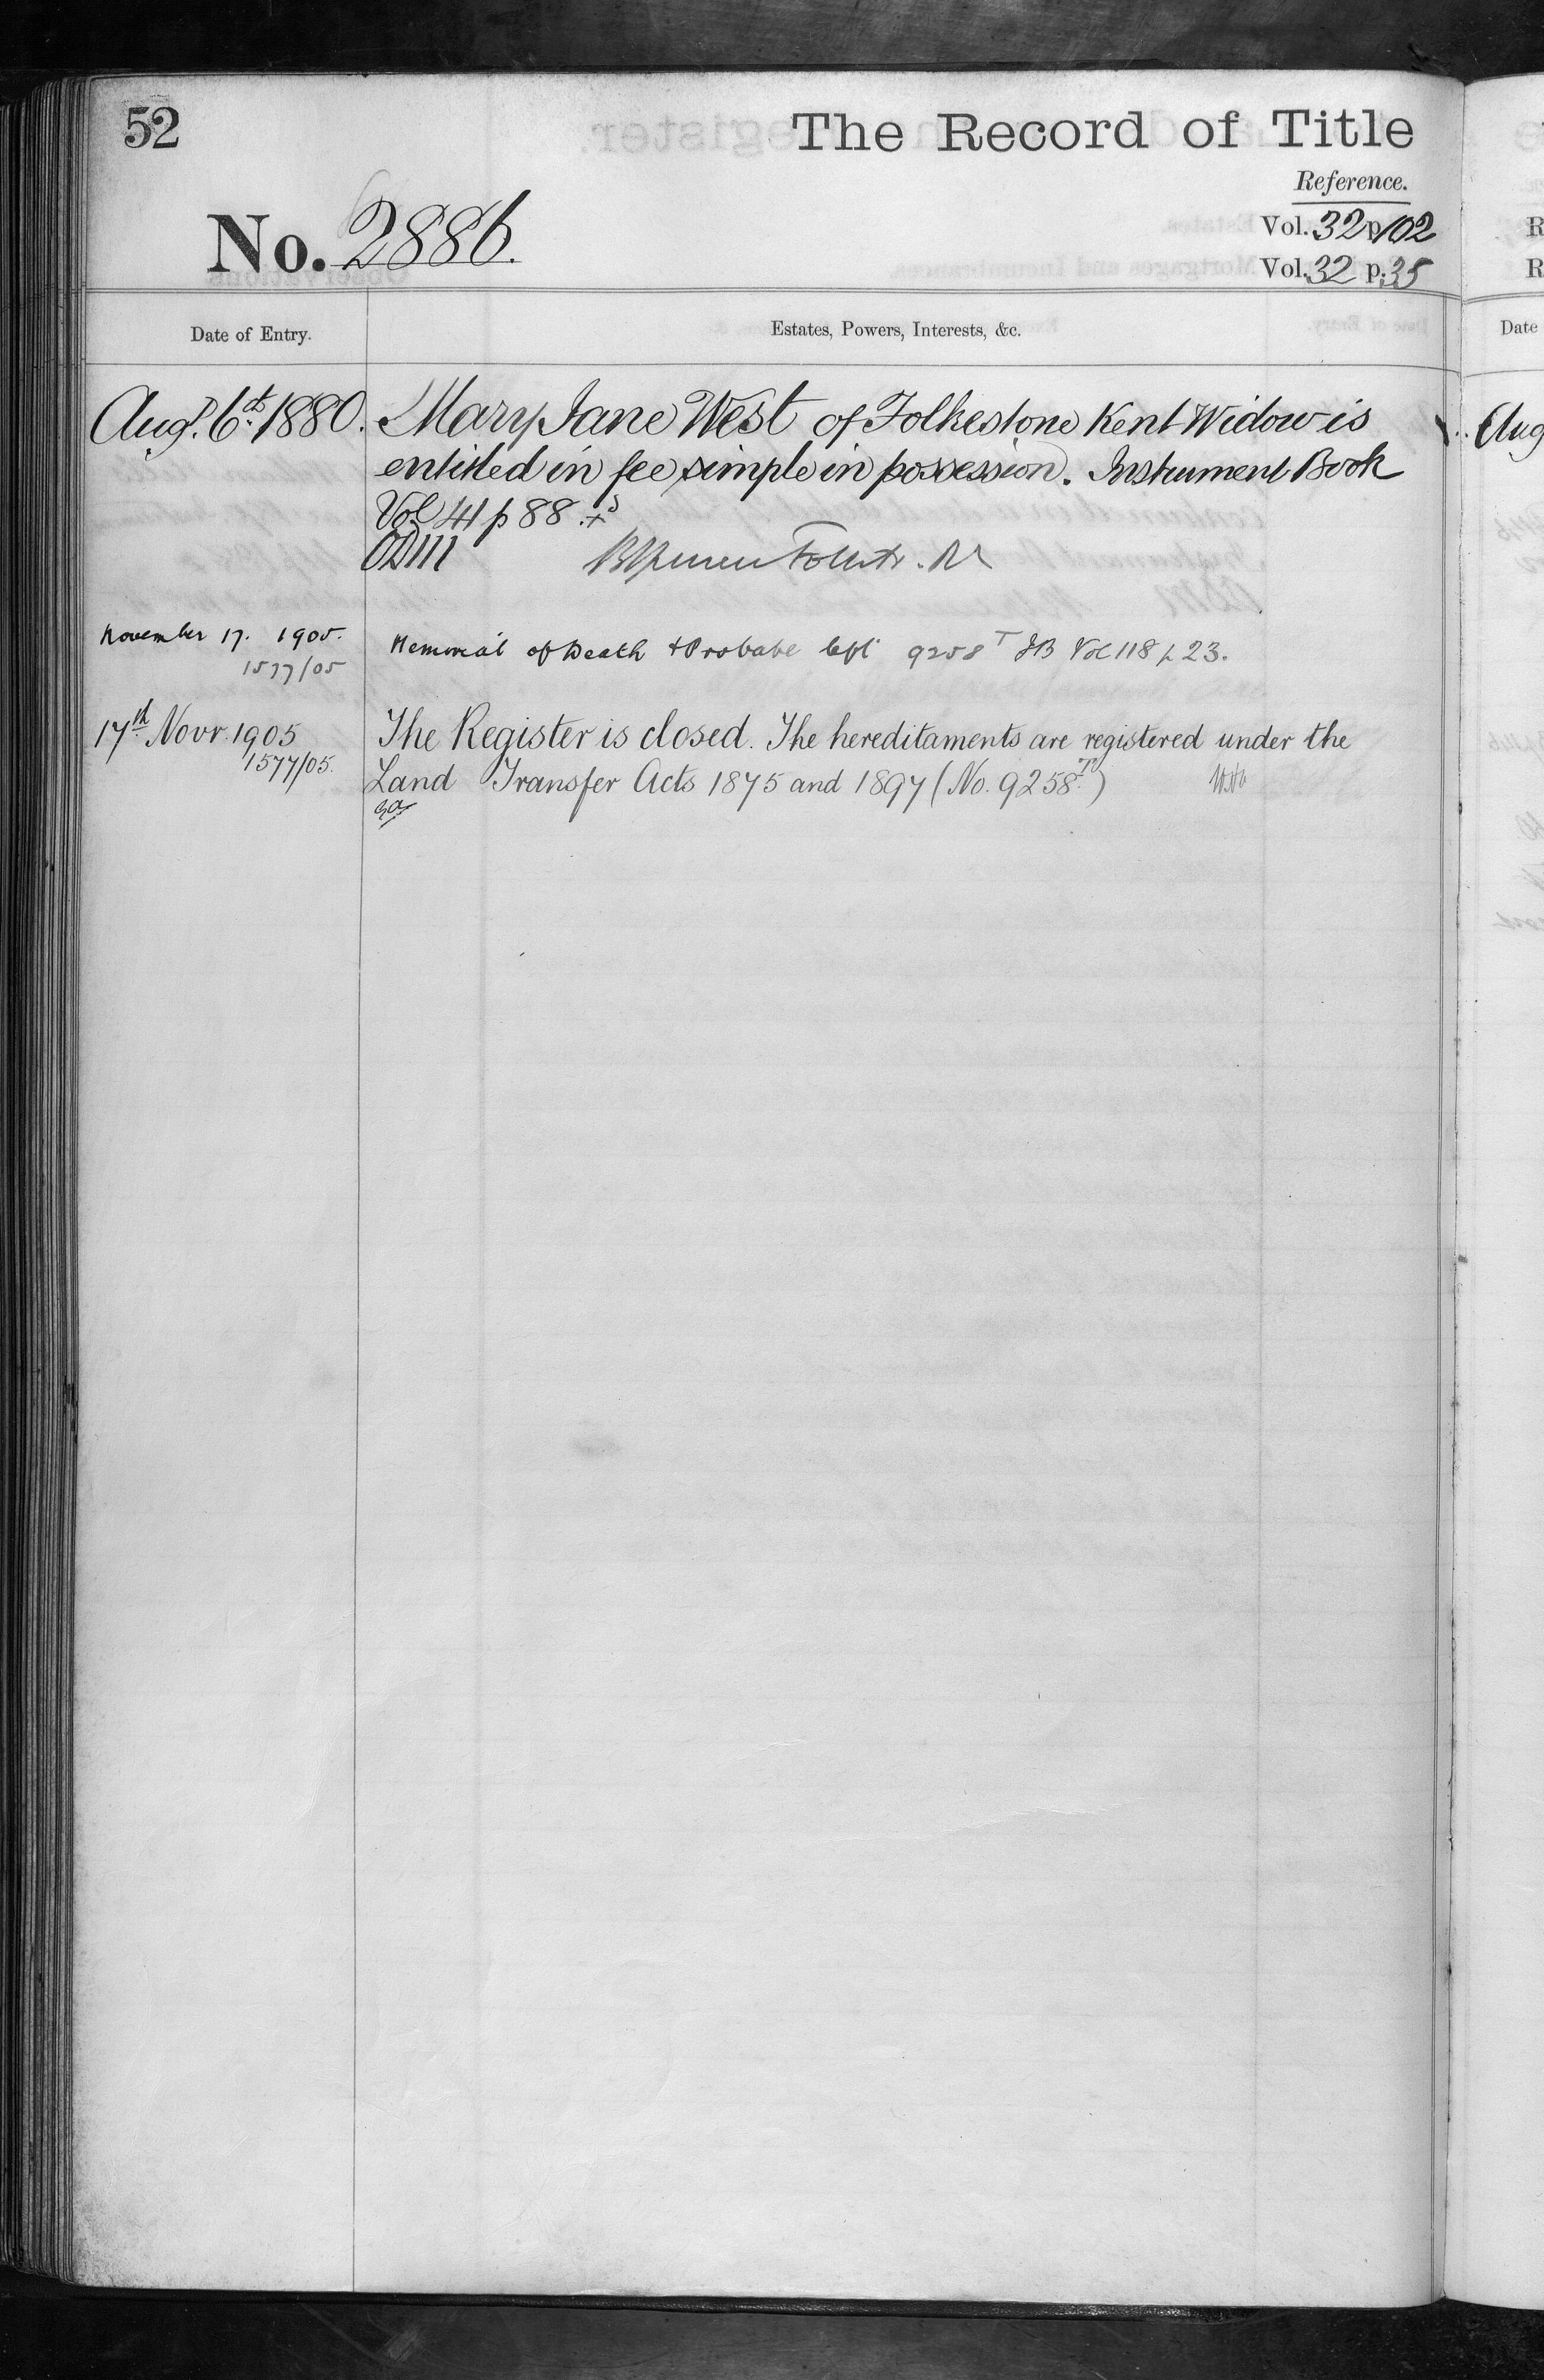 52
The Record of Title
Reference.
No. 2886.
Vol. 32 p 102
Vol. 32 p. 35
Date of Entry.
Estates, Powers, Interests, &c.
Augt. 6th. 1880. Mary Jane West of Folkestone Kent Widow is
entitled in fee simple in possession. Instrument Book
Vol 41 p 88.
November 17. 1905. Memorial of Death & Probate left 9258 T IB Vol 118 p 23.
1577/05
17th Novr. 1905 The Register is closed. The hereditaments are registered under the
1577/05. Land Transfer Acts 1875 and 1897 (No. 9258.)
R
R
Date
Aug